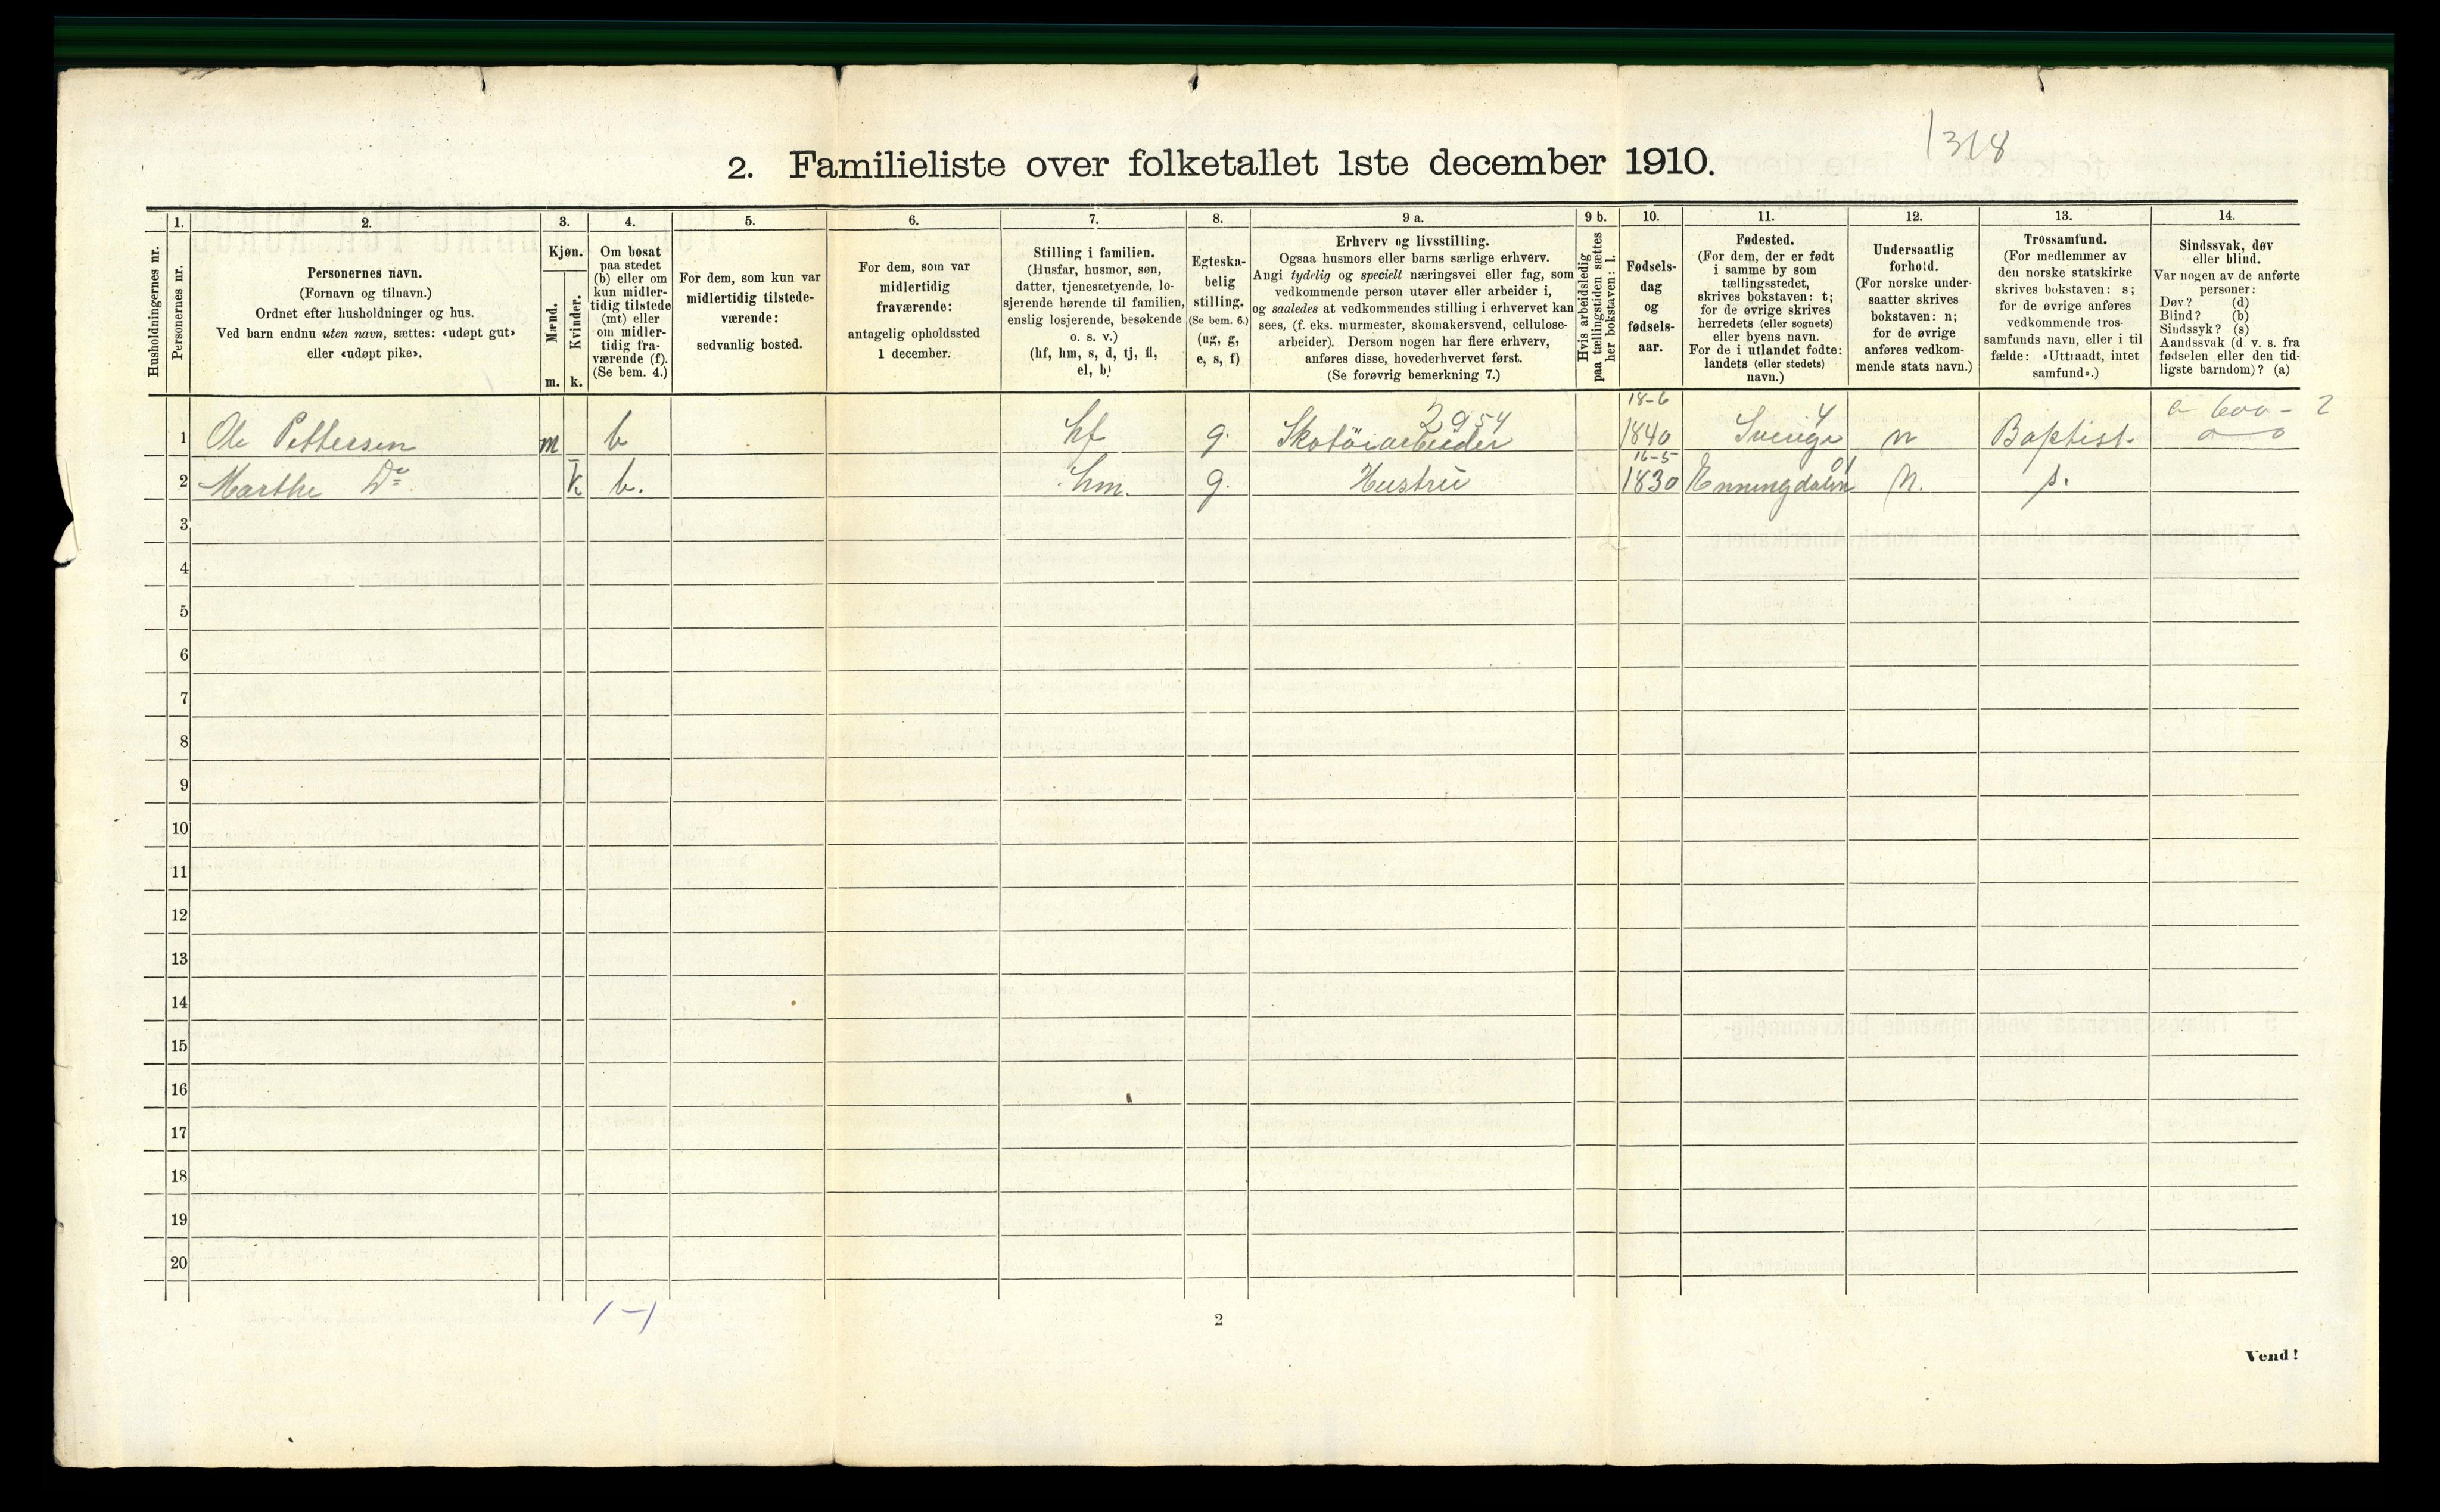 1318
2. Familieliste over folketallet 1ste december 1910.
Husholdningernes nr.
1.
Personernes nr.
2.
Personernes navn.
(Fornavn og tilnavn.)
Ordnet efter husholdninger og hus.
Ved barn endnu uten navn, sættes: «udøpt gut»
eller «udøpt pike».
3.
Kjøn.
Mænd.
m.
Kvinder.
k.
4.
Om bosat
paa stedet
(b) eller om
kun midler-
tidig tilstede
(mt) eller
om midler-
tidig fra-
værende (f).
(Se bem. 4.)
5.
For dem, som kun var
midlertidig tilstede-
værende:
sedvanlig bosted.
6.
For dem, som var
midlertidig
fraværende:
antagelig opholdssted
1 december.
7.
Stilling i familien.
(Husfar, husmor, søn,
datter, tjenestetyende, lo-
sjerende hørende til familien,
enslig losjerende, besøkende
o. s. v.)
(hf, hm, s, d, tj, fl,
el, b)
8.
Egteska-
belig
stilling.
(Se bem. 6.)
(ug, g,
e, s, f)
9 a.
Erhverv og livsstilling.
Ogsaa husmors eller barns særlige erhverv.
Angi tydelig og specielt næringsvei eller fag, som
vedkommende person utøver eller arbeider i,
og saaledes at vedkommendes stilling i erhvervet kan
sees, (f. eks. murmester, skomakersvend, cellulose-
arbeider). Dersom nogen har flere erhverv,
anføres disse, hovederhvervet først.
(Se forøvrig bemerkning 7.)
9 b.
Hvis arbeidsledig
paa tællingstiden sættes
her bokstaven: l.
10.
Fødsels-
dag
og
fødsels-
aar.
11.
Fødested.
(For dem, der er født
i samme by som
tællingsstedet,
skrives bokstaven: t;
for de øvrige skrives
herredets (eller sognets)
eller byens navn.
For de i utlandet fødte:
landets (eller stedets)
navn.)
12.
Undersaatlig
forhold.
(For norske under-
saatter skrives
bokstaven: n;
for de øvrige
anføres vedkom-
mende stats navn.)
13.
Trossamfund.
(For medlemmer av
den norske statskirke
skrives bokstaven: s;
for de øvrige anføres
vedkommende tros-
samfunds navn, eller i til
fælde: «Uttraadt, intet
samfund».)
14.
Sindssvak, døv
eller blind.
Var nogen av de anførte
personer:
Døv? (d)
Blind? (b)
Sindssyk? (s)
Aandssvak (d. v. s. fra
fødselen eller den tid-
ligste barndom)? (a)
2954 18-6 4 600 - 2
1 Ole Pettersen m b hf g. Skotöiarbeider 1840 Sverige n Baptist.
16-5 01
2 Marthe Do k b. hm. g. Hustru 1830 Enningdalen n. s.
3
4
5
6
7
8
9
10
11
12
13
14
15
16
17
18
19
20
1-1
2
Vend!